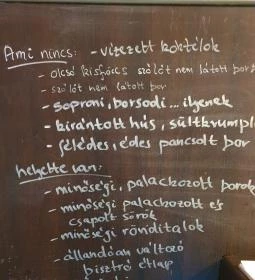 Ami nincs: - vizezett koktélok
- olcsó kisfröccs szőlőt nem látott bor
- szőlőt nem látott bor
- soproni, borsodi... ilyenek
- kirántott hús, sültkrumpli
- félédes, édes pancsolt bor
helyette van:
- minőségi, palackozott borok
- minőségi palackozott és
csapolt sörök
- minőségi röviditalok
- állandóan változó
bisztró étlap